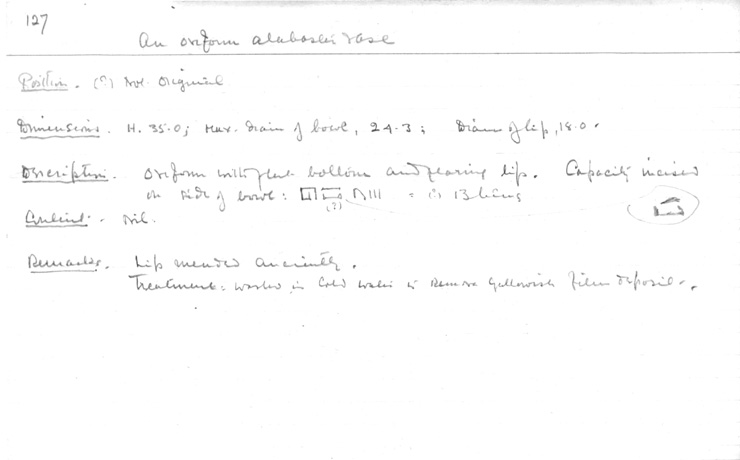 127
An oviform alabaster vase
Position. (?) Not original
Dimensions. H. 35.0; Max. diam of bowl, 24.3; Diam of lip, 18.0.
Description. Oviform with flat bottom and flaring lip. Capacity incised
on side of bowl: ∩III = 13 hins
(?)
Content. Nil.
Remarks. Lip mended anciently.
Treatment: washed in cold water to remove yellowish film deposit.